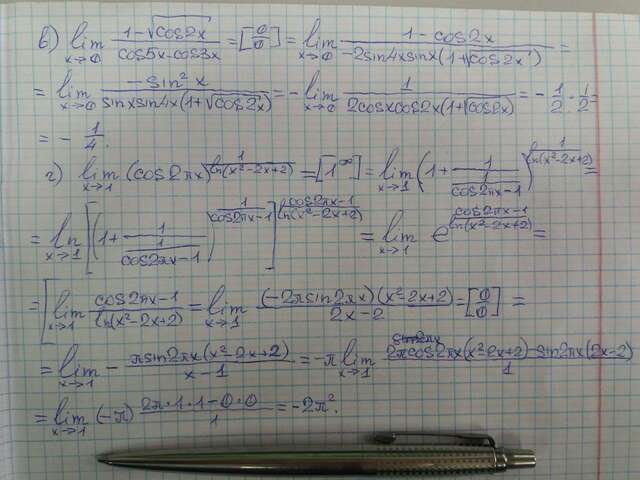 в) lim x→0 (1-√cos2x)/(cos5x-cos3x) = [0/0] = lim x→0 (1-cos2x)/(-2sin4xsinx(1+√cos2x)) =
= lim x→0 (-sin²x)/(sinxsin4x(1+√cos2x)) = - lim x→0 1/(2cosxcos2x(1+√cos2x)) = - 1/2 · 1/2 =
= - 1/4.
г) lim x→1 (cos2πx)^(1/ln(x²-2x+2)) = [1^∞] = lim x→1 (1+1/(1/(cos2πx-1)))^(1/ln(x²-2x+2)) =
= ln x→1 [(1+1/(1/(cos2πx-1)))^(1/(cos2πx-1))]^((cos2πx-1)/ln(x²-2x+2)) = lim x→1 e^((cos2πx-1)/ln(x²-2x+2)) =
= [lim x→1 (cos2πx-1)/(ln(x²-2x+2)) = lim x→1 ((-2πsin2πx)(x²-2x+2))/(2x-2) = [0/0] =
= lim x→1 - (πsin2πx(x²-2x+2))/(x-1) = -π lim x→1 (2πcos2πx(x²-2x+2)-sin2πx(2x-2))/1
= lim x→1 (-π) (2π·1·1-0·0)/1 = -2π².